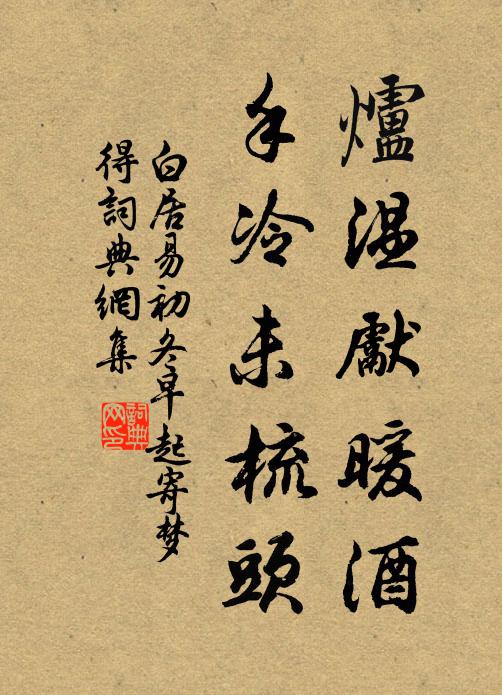 爐温獻暖酒
手冷未梳頭
白居易初冬早起寄梦
得詞典網集
詞典
网印